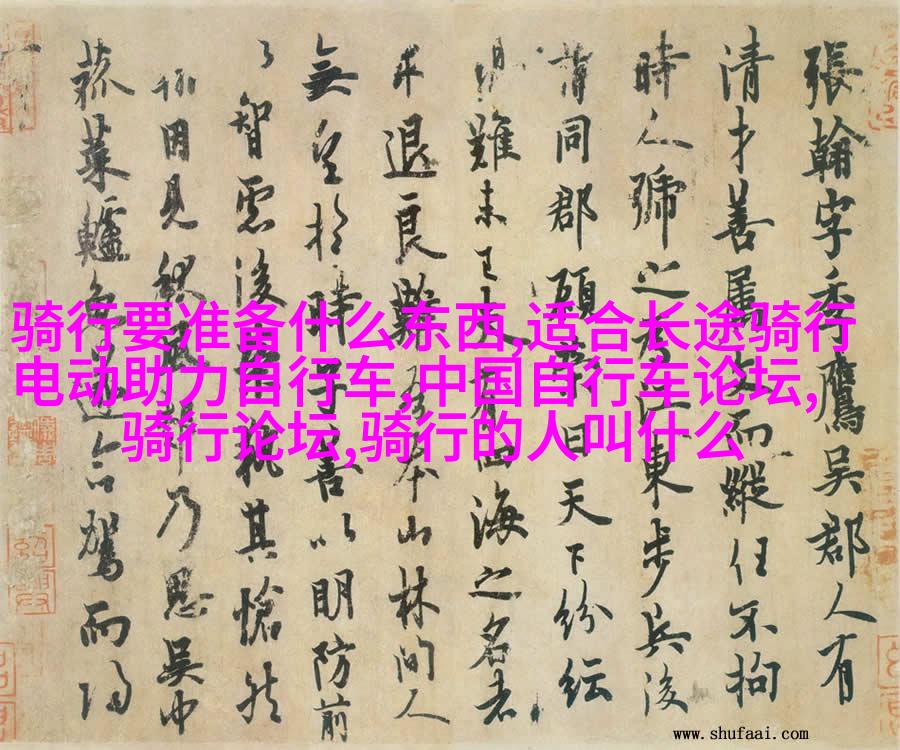 骑行要准备什么东西,适合长途骑行
电动助力自行车,中国自行车论坛,
骑行论坛,骑行的人叫什么
張翰字季鷹吳郡人有
清才善属文而縱任不拘
時人號之為江東步兵後
謂同郡顧榮曰天下紛紜
禍難未已夫有四海之名者
求退良難吾本山林間人
無望於時子善以明防前
以智慮後榮執其愴然
翰因見秋風起乃思吳中
菰菜鱸魚遂命駕而歸
www.shufaai.com